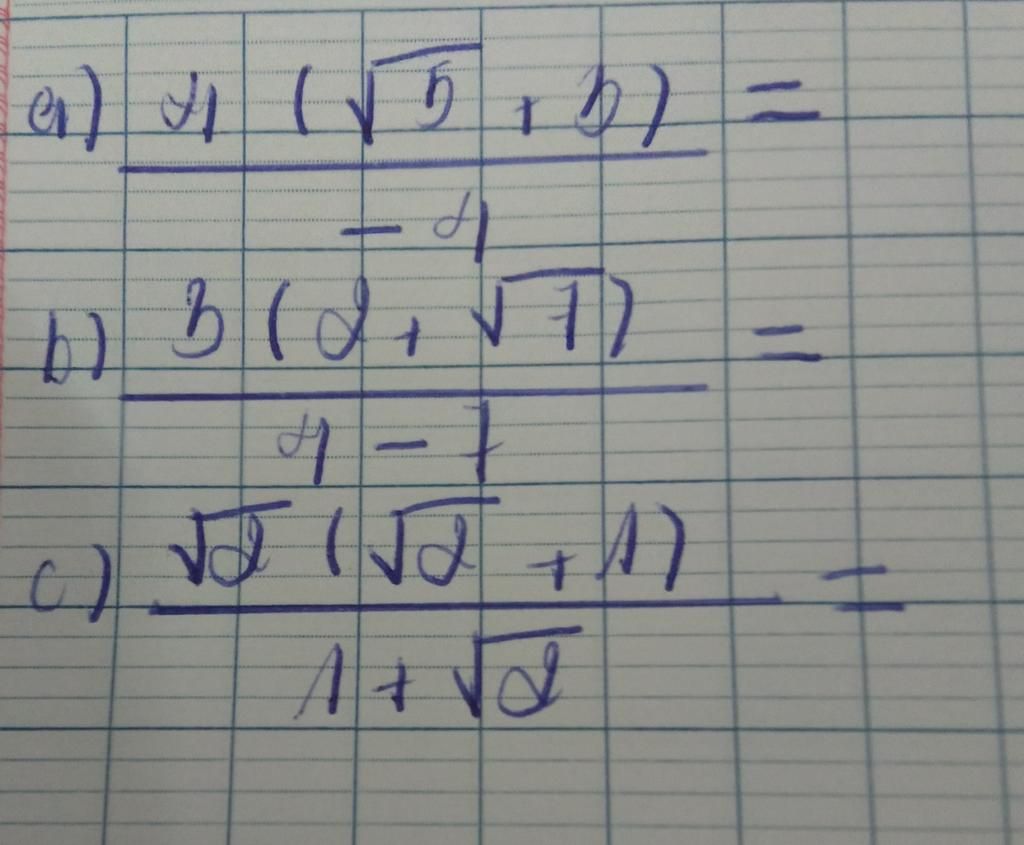 a) 4 (√5 + 3) =
- 4
b) 3 (2 + √7) =
4 - 7
c) √2 (√2 + 1) =
1 + √2